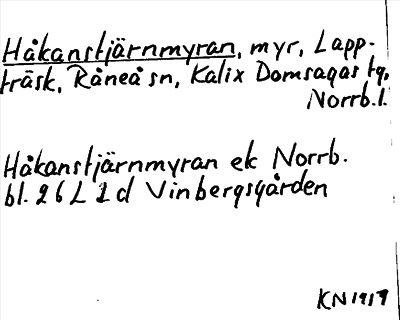 Håkanstjärnmyran, myr, Lapp-
träsk, Råneå sn, Kalix Domsagas tg,
Norrb.l.
Håkanstjärnmyran ek Norrb.
bl. 26 L 1d Vinbergsgården
KN 1919